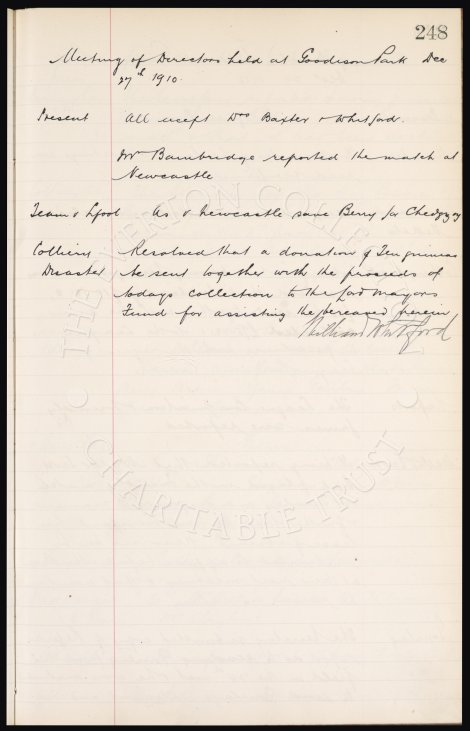 248
Meeting of Directors held at Goodison Park Dec
27th 1910.
Present All except Drs Baxter & Whitford.
Mr Bainbridge reported the match at
Newcastle
Team v Lpool As v Newcastle save Berry for Chedgzoy
Colliery Resolved that a donation of Ten guineas
Disaster be sent together with the proceeds of
todays collection to the Lord Mayors
Fund for assisting the bereaved therein
William Whitford
THE EVERTON COLLECTION
CHARITABLE TRUST